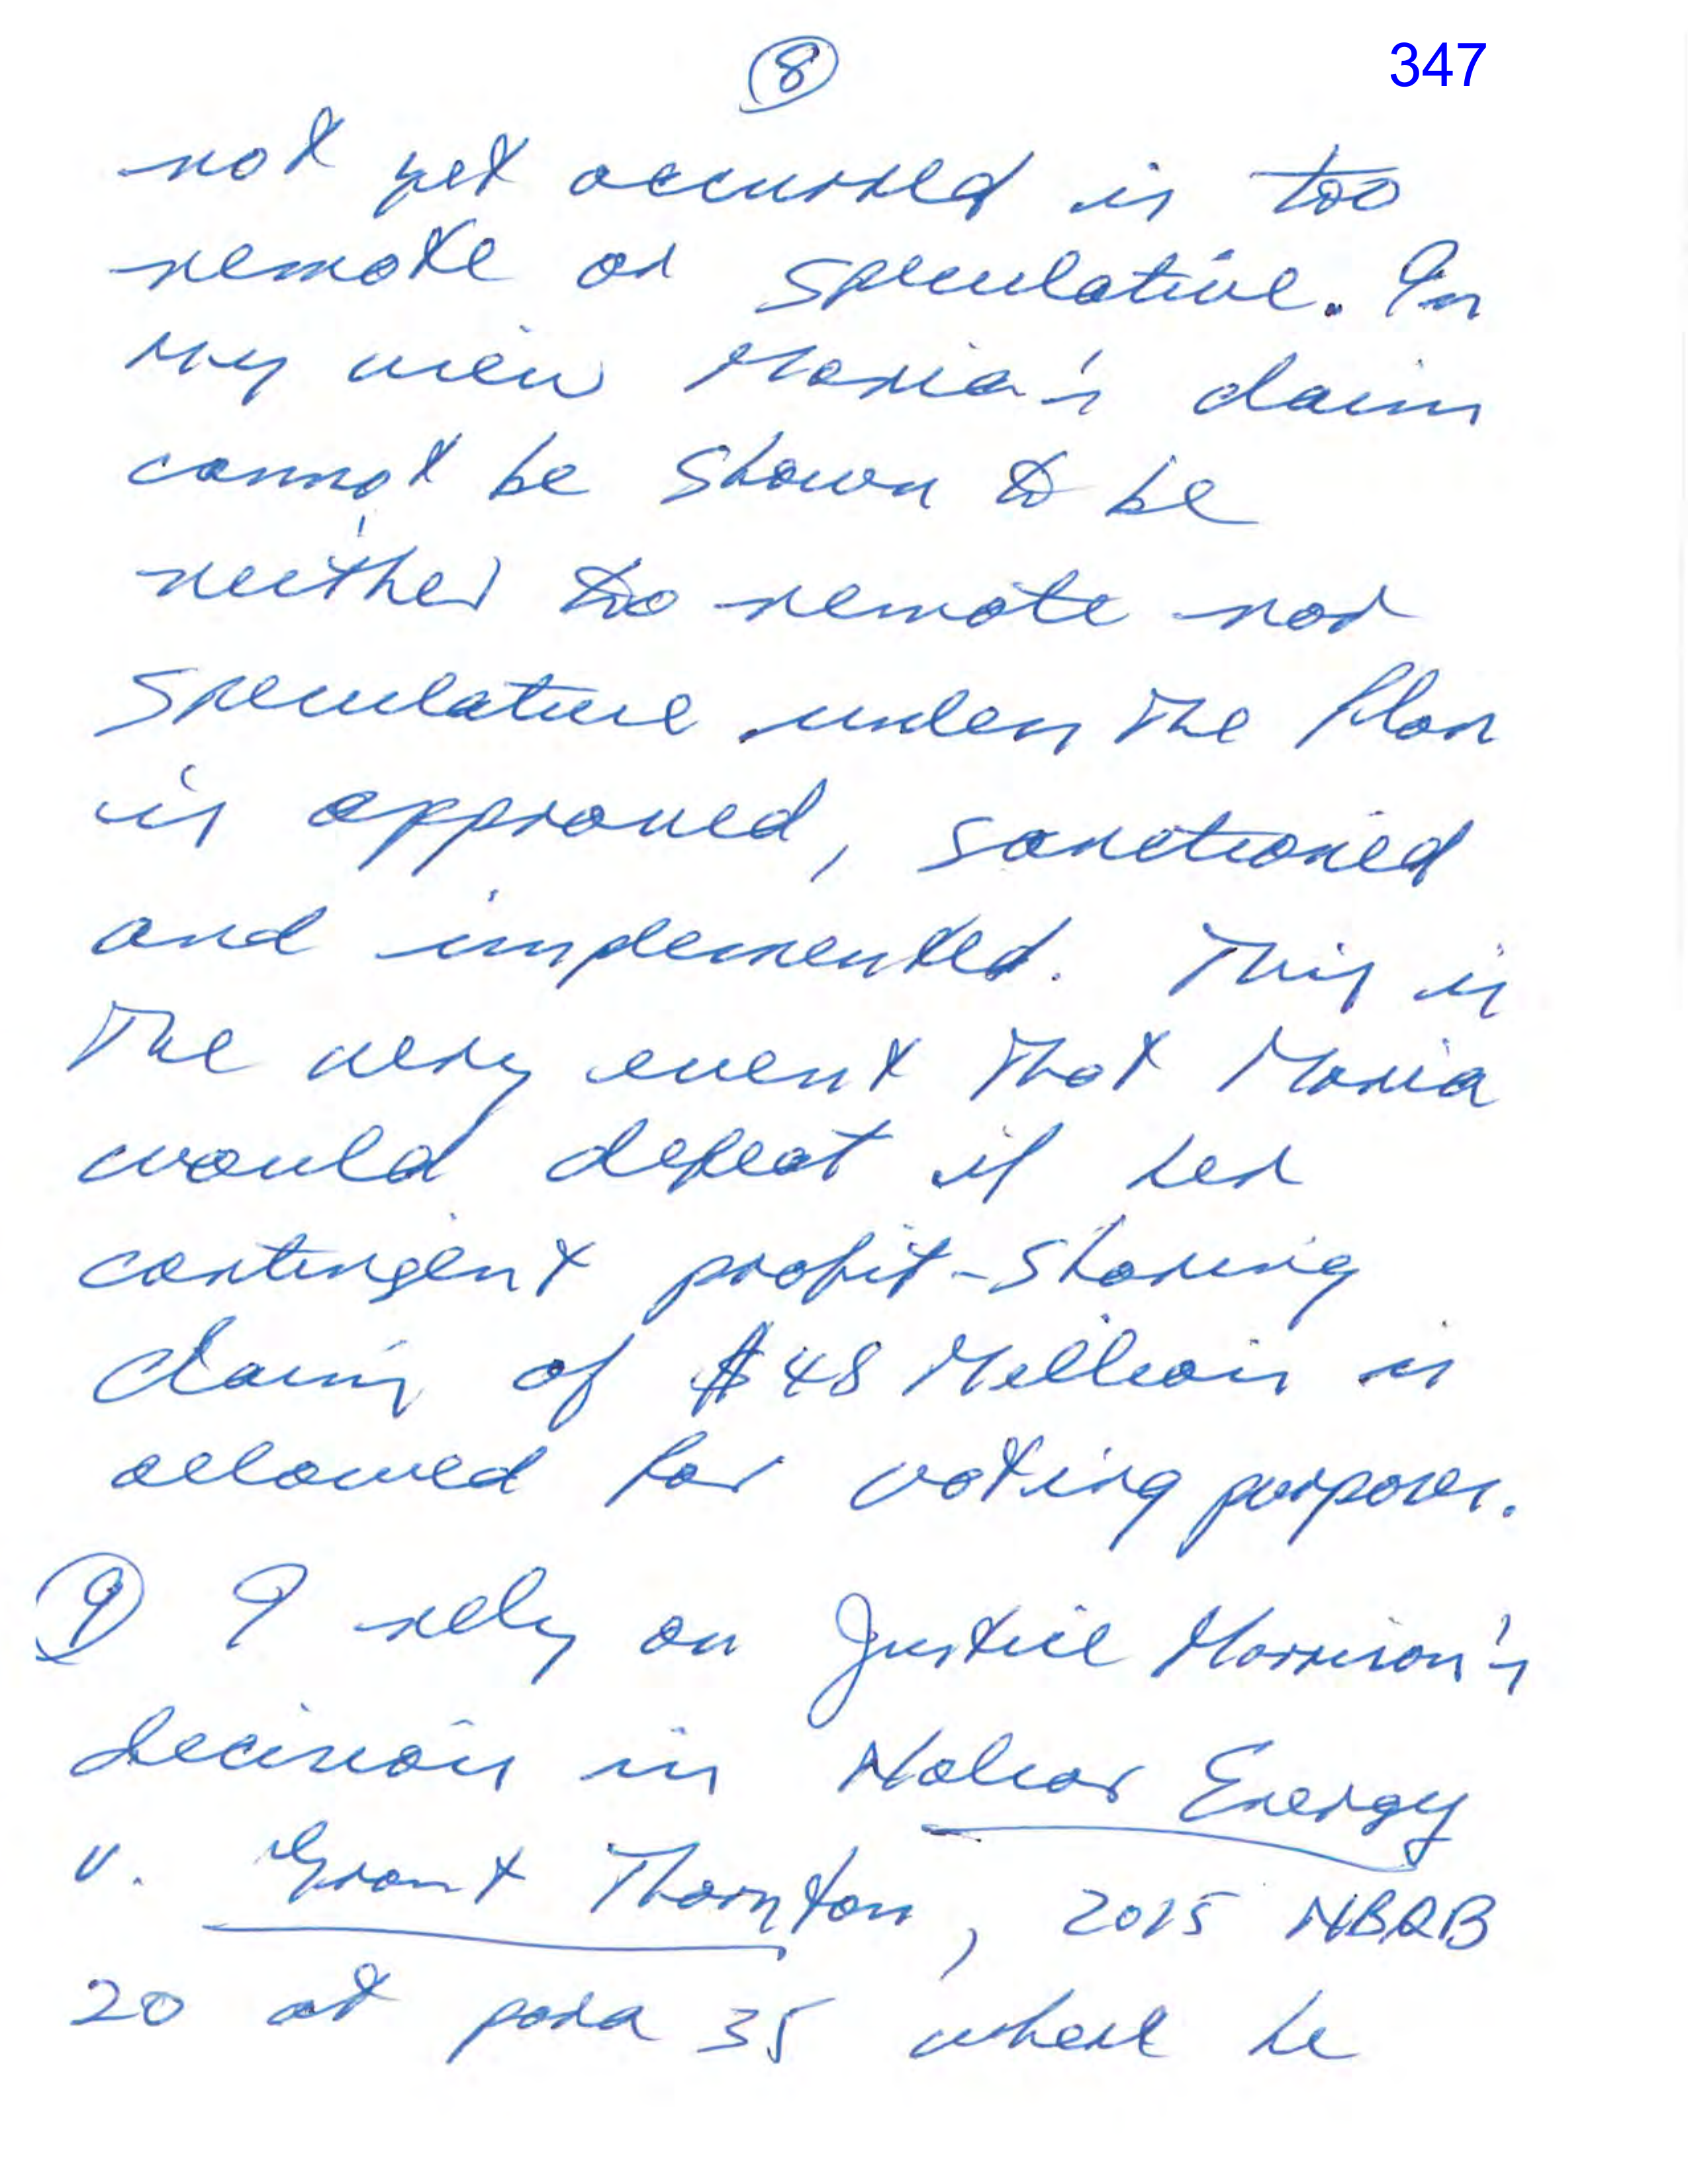 8
347
not yet occurred is too
remote or speculative. In
my view Maria's claim
cannot be shown to be
neither too remote nor
speculative unless the Plan
is approved, sanctioned
and implemented. This is
the very event that Maria
would defeat if her
contingent profit-sharing
claim of $48 Million is
allowed for voting purposes.
9 I rely on Justice Morrison's
decision in Nalcor Energy
v. Grant Thornton, 2015 NBQB
20 at para 35 where he